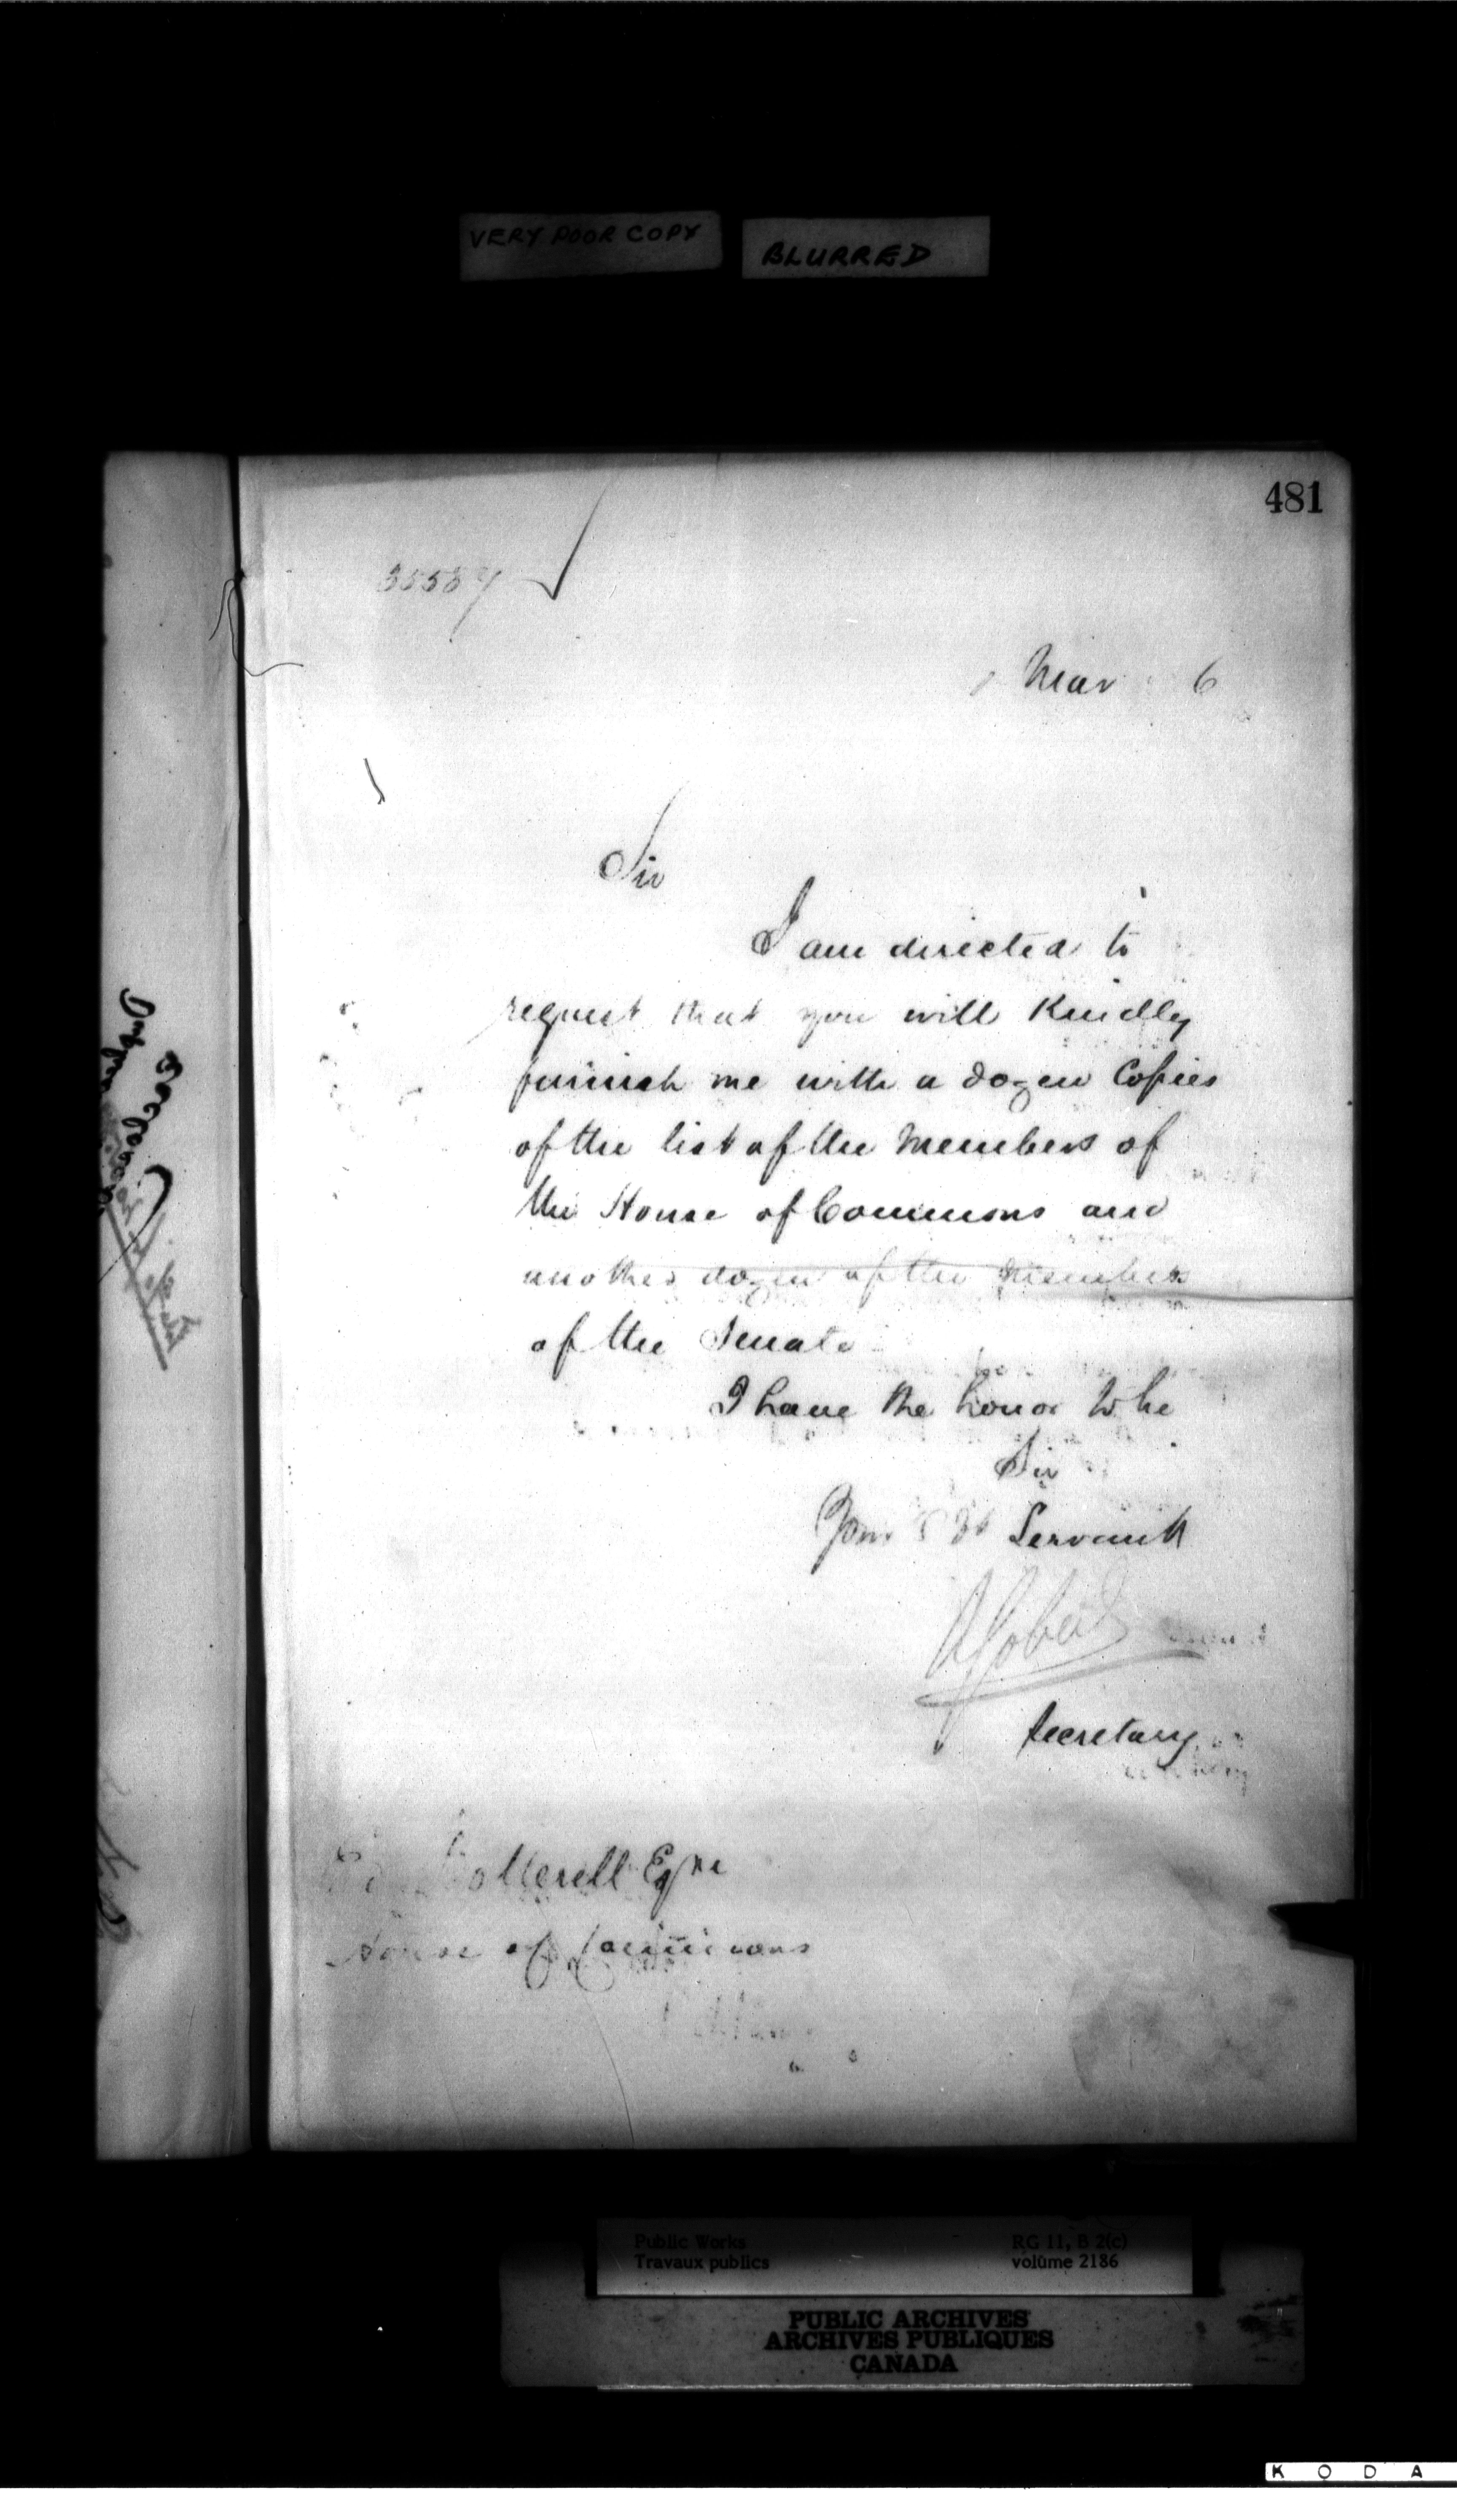 VERY POOR COPY
BLURRED
481
Mar 6
Sir
I am directed to
request that you will Kindly
furnish me with a dozen Copies
of the list of the Members of
the House of Commons and
another dozen of the Members
of the Senate
I have the honor to be
Sir
Your Servant
Secretary
Esqre
House of Commons
Public Works
Travaux publics
RG 11, B 2(c)
volume 2186
PUBLIC ARCHIVES
ARCHIVES PUBLIQUES
CANADA
K O D A